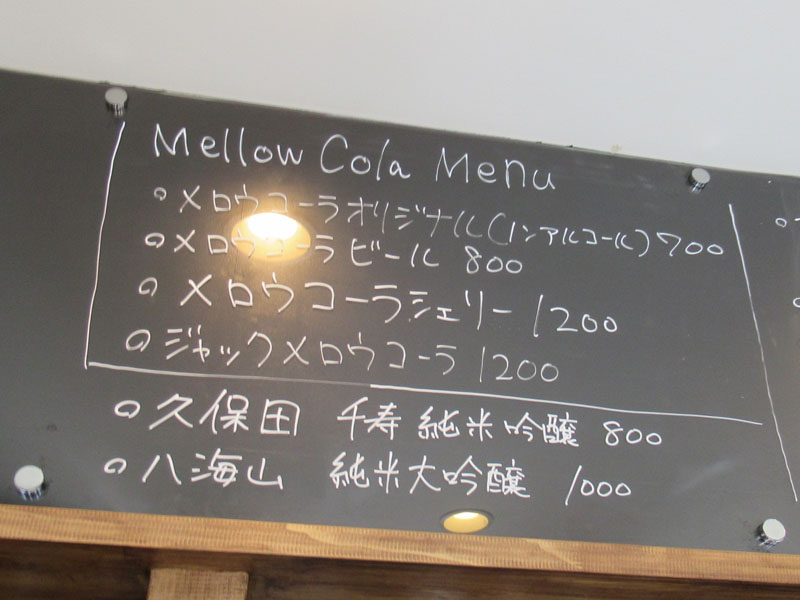 Mellow Cola Menu
○メロウコーラオリジナル(ノンアルコール) 700
○メロウコーラビール 800
○メロウコーラシェリー 1200
○ジャックメロウコーラ 1200
○久保田 千寿 純米吟醸 800
○八海山 純米大吟醸 1000